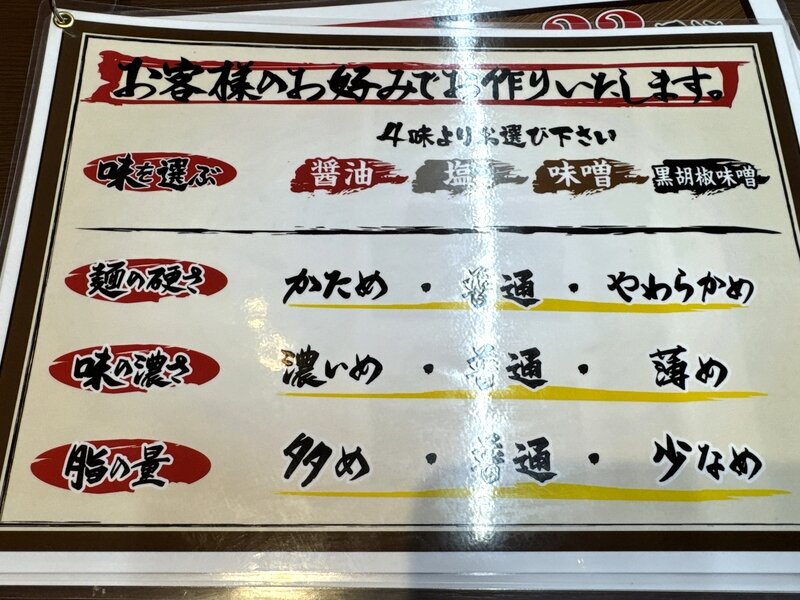 お客様のお好みでお作りいたします。
4味よりお選び下さい
味を選ぶ 醤油 塩 味噌 黒胡椒味噌
麺の硬さ かため ・ 普通 ・ やわらかめ
味の濃さ 濃いめ ・ 普通 ・ 薄め
脂の量 多め ・ 普通 ・ 少なめ